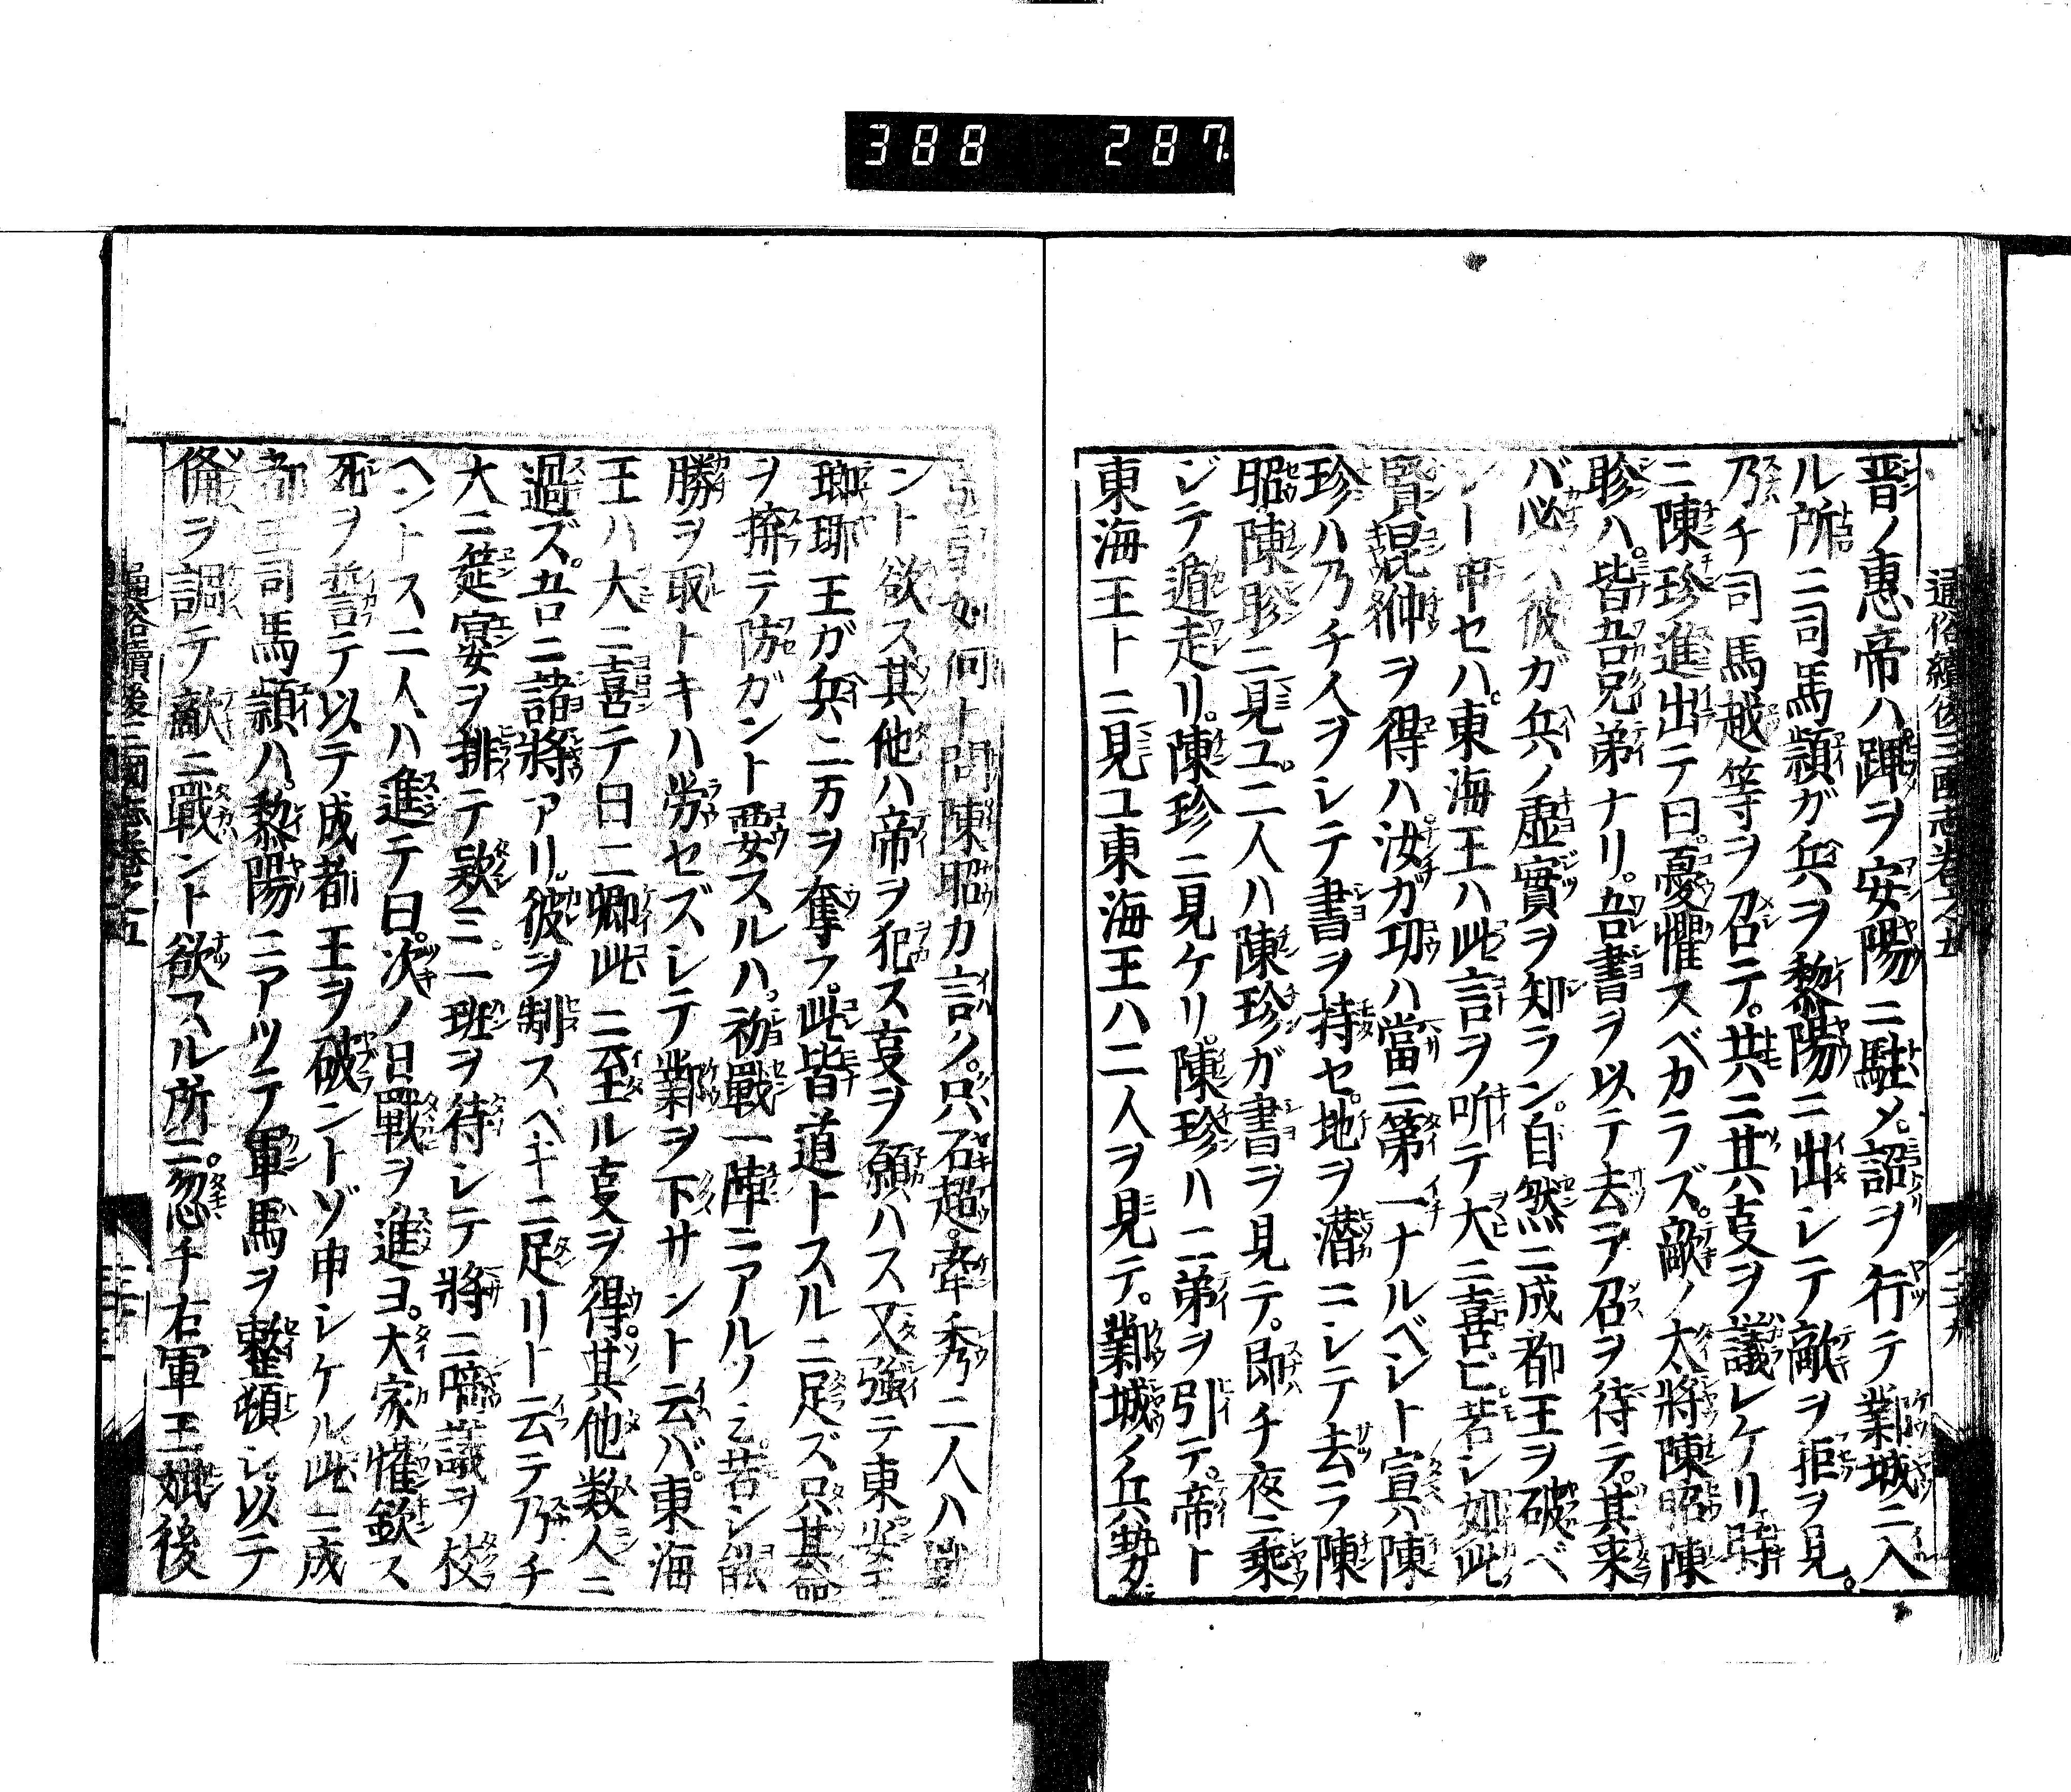 388 287
通俗續後三國志卷之五
晋ノ惠帝ハ蹕ヲ安陽ニ駐メ。詔ヲ行テ鄴城ニ入
ル所ニ司馬頴ガ兵ヲ黎陽ニ出シテ敵ヲ拒ヲ見。
乃チ司馬越等ヲ召テ。共ニ其㕝ヲ議シケリ。時
ニ陳珍進出テ曰。憂懼スベカラズ。敵ノ太將陳昭陳
昣ハ。皆吾兄弟ナリ。吾書ヲ以テ去テ召ヲ待テ。其来
バ必ス彼ガ兵ノ虚實ヲ知ラン。自然ニ成都王ヲ破ベ
シト申セハ。東海王ハ此言ヲ听テ大ニ喜ビ若シ如此
賢昆仲ヲ得ハ汝ガ功ハ當ニ第一ナルベシト宣バ陳
珍ハ乃チ人ヲシテ書ヲ持セ。地ヲ潜ニシテ去ラ陳
昭陳昣ニ見ユ。二人ハ陳珍ガ書ヲ見テ。即チ夜ニ乘
ジテ遁走リ。陳珍ニ見ケリ。陳珍ハ二弟ヲ引テ。帝ト
東海王トニ見ユ東海王ハ二人ヲ見テ。鄴城ノ兵勢カ
如何ト問陳昭カ言ク。只石超。牽秀二人ハ戰
ント欲ス其他ハ帝ヲ犯ス㕝ヲ願ハス又強テ東安王
瑯琊王ガ兵二万ヲ奪フ。此皆道トスルニ足ズ只其命
ヲ拚テ防ガント要スルハ。初戰一陣ニアルノミ。若シ能
勝ヲ取トキハ労セズシテ鄴ヲ下サント云バ。東海
王ハ大ニ喜テ曰二卿此ニ至ル㕝ヲ得。其他数人ニ
過ズ。吾ニ諸將アリ。彼ヲ制スベキニ足リト云テ乃チ
大ニ筵宴ヲ排テ欵ノミ。一班ヲ待シテ將ニ啼議ヲ挍
ヘントス二人ハ進テ曰。次ノ日戰ヲ進ヨ。大家懽欽ス
死ヲ誓テ以テ成都王ヲ破ントゾ申シケル此ニ成
都王司馬頴ハ。黎陽ニアツテ軍馬ヲ整頓シ以テ
俻ヲ調テ敵ニ戰ント欲スル所ニ。忽チ右軍王斌後
通俗續後三國志卷之五